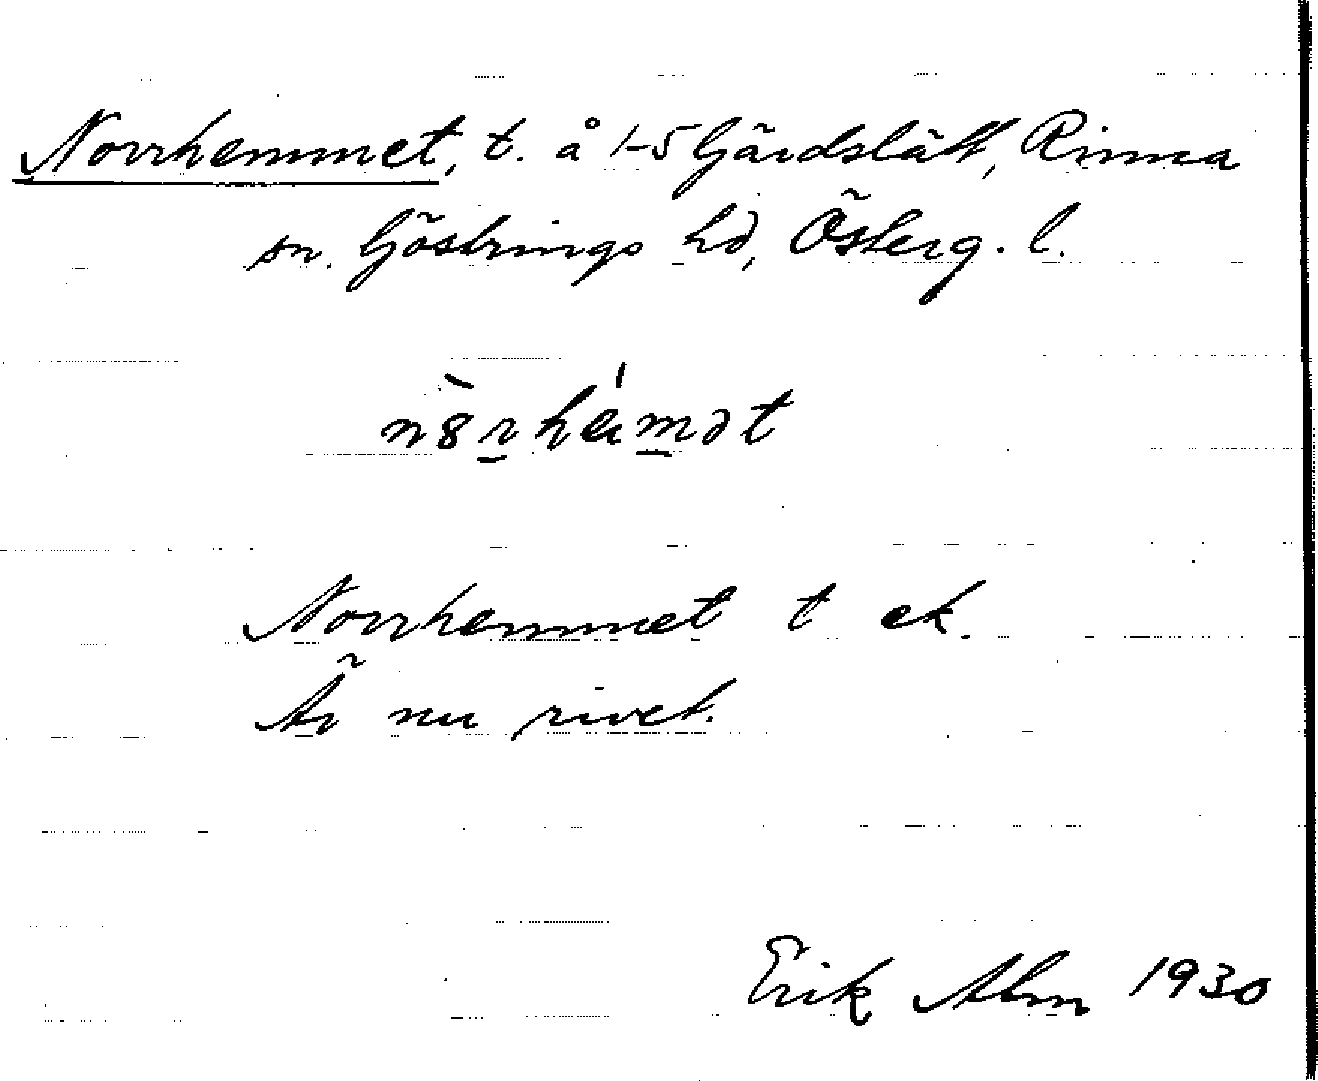 Norrhemmet, t. å 1-5 Gärdslätt, Rinna
sn. Göstrings hd, Österg. l.
Norrhemmet t ek.
Är nu rivet.
Erik Alm 1930